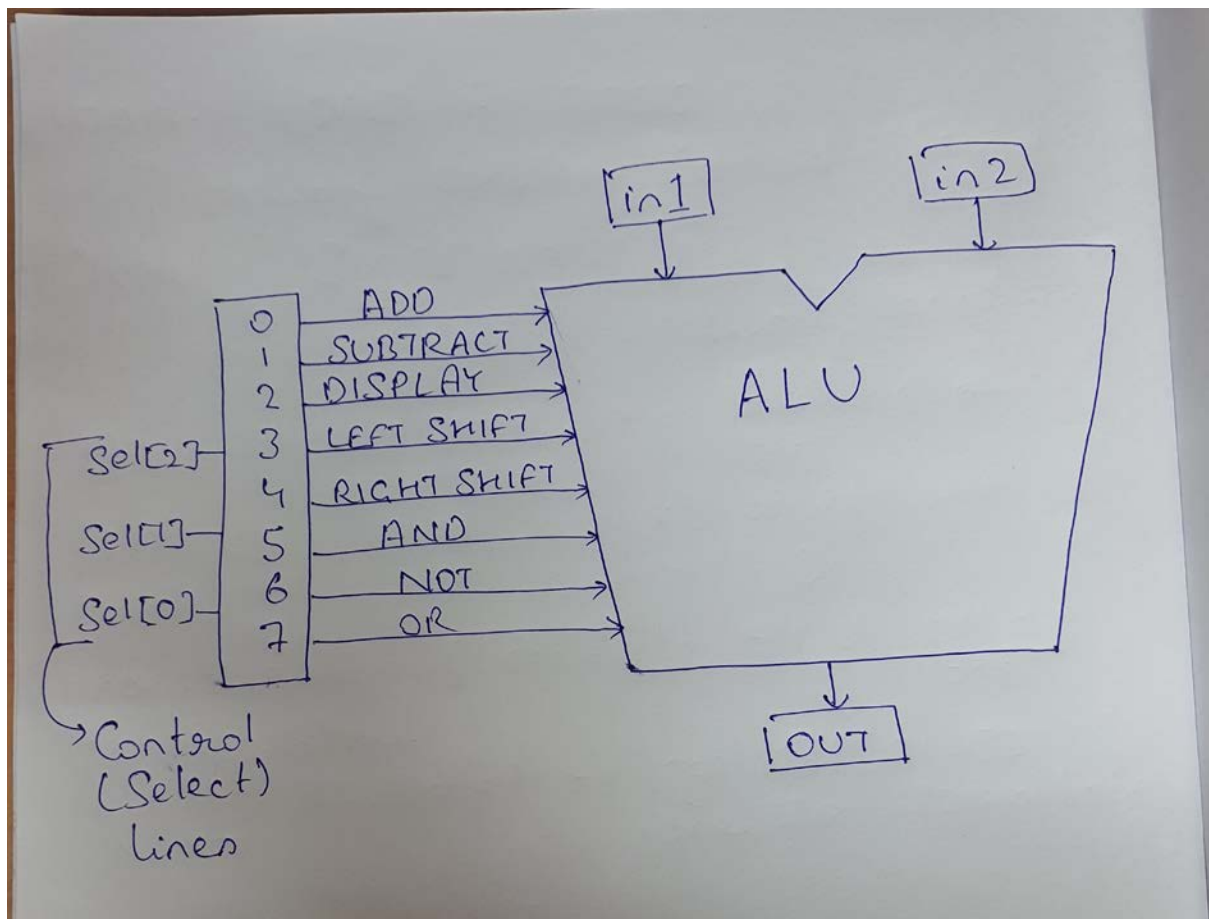 in1
in2
0 ADD
1 SUBTRACT
2 DISPLAY
3 LEFT SHIFT
4 RIGHT SHIFT
5 AND
6 NOT
7 OR
Sel[2]
Sel[1]
Sel[0]
ALU
OUT
Control
(Select)
lines